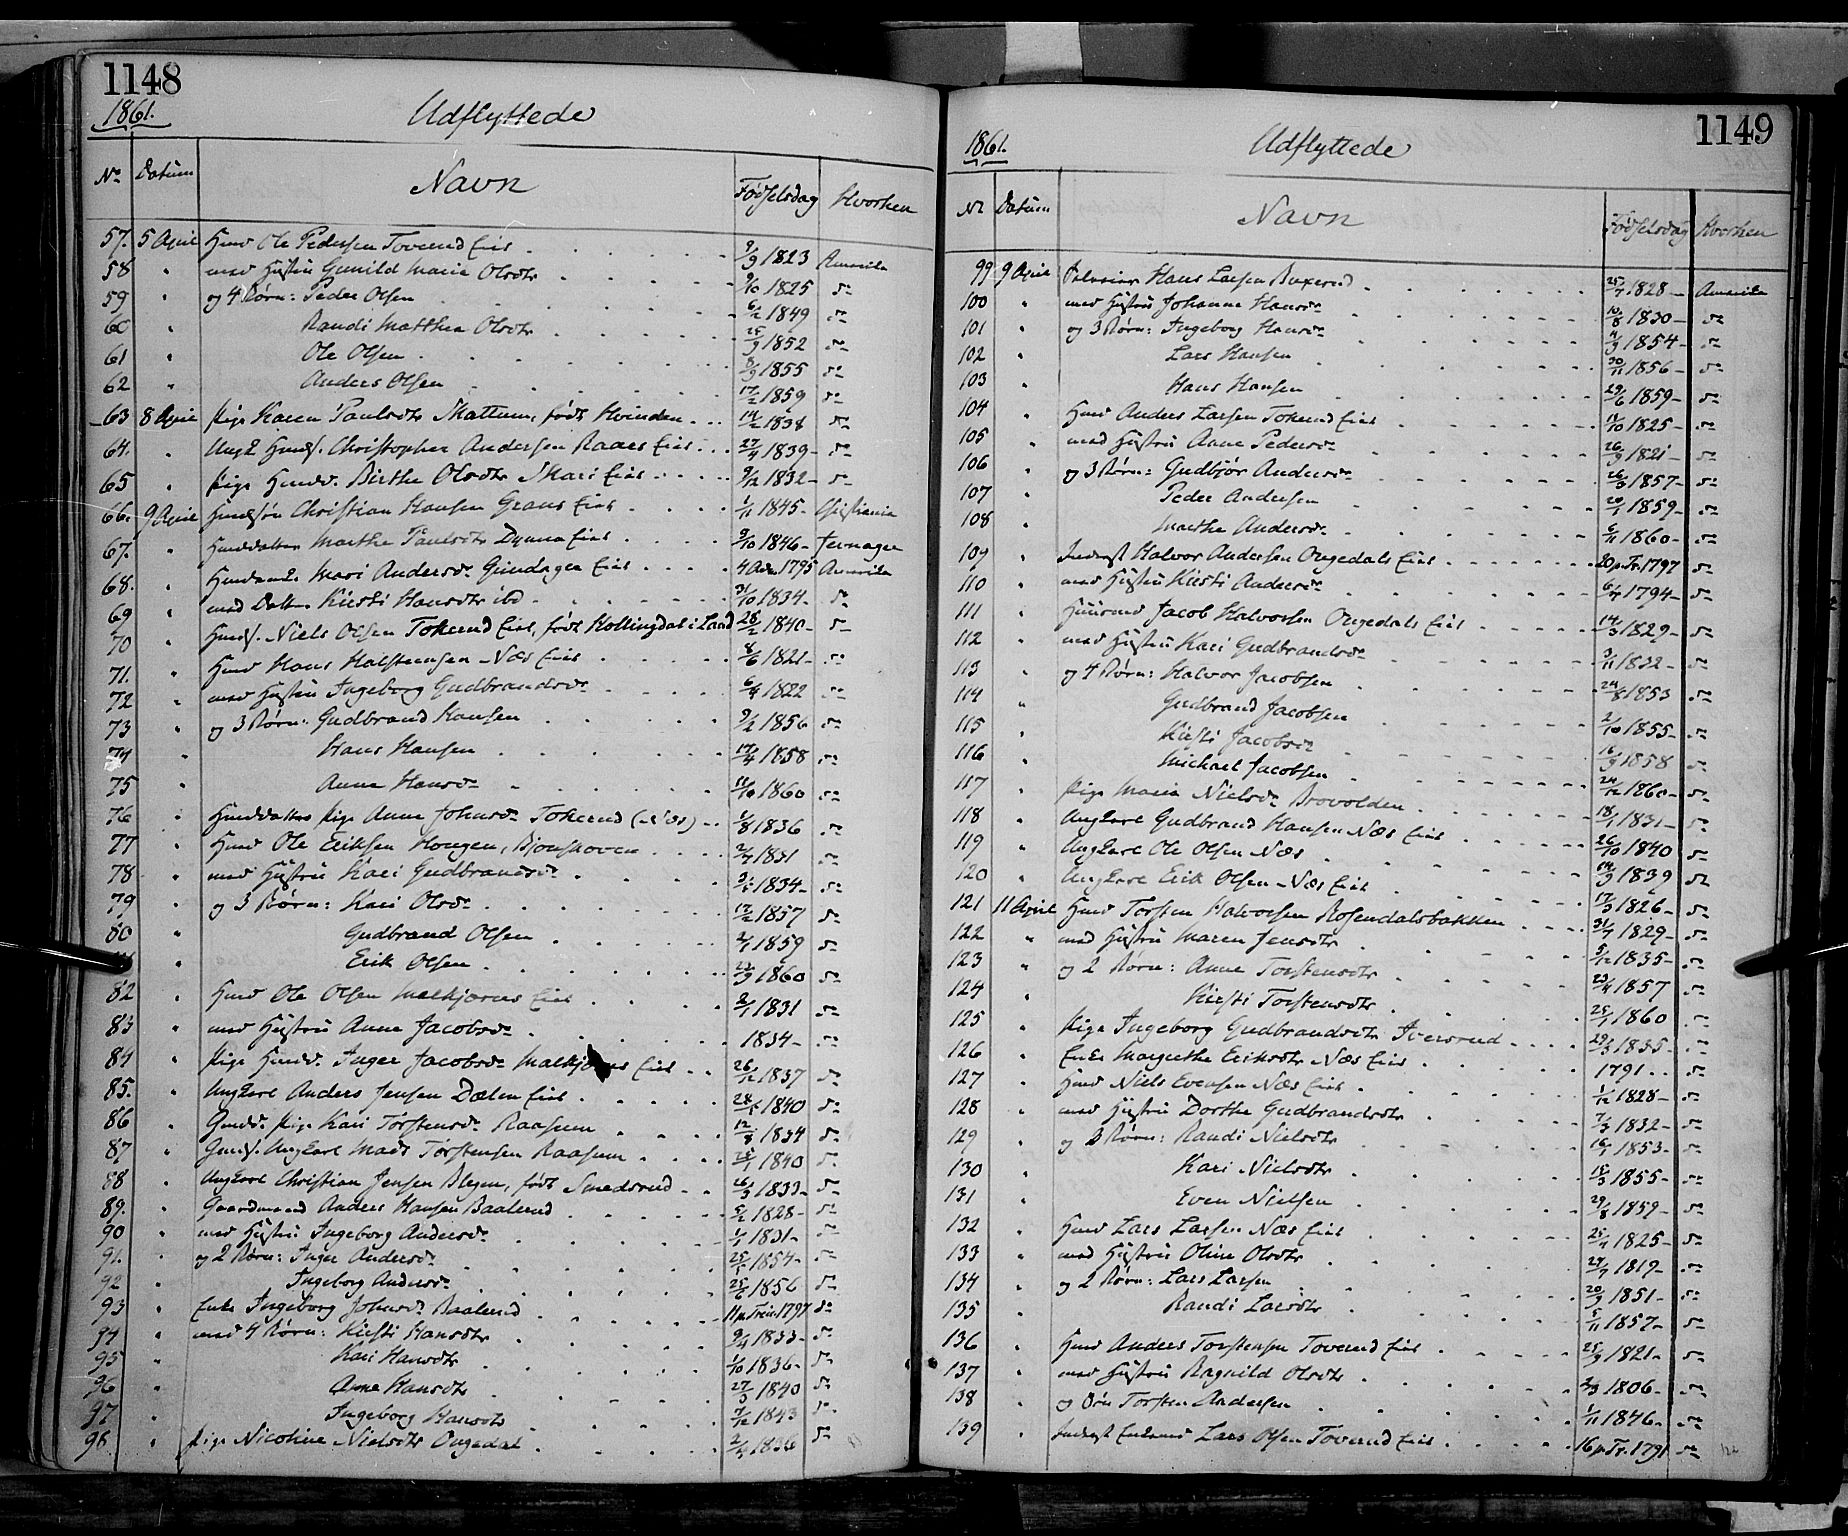 1148
1861.
Udflyttede
No Datum Navn Fødselsdag Hvorhen
57. 5 April Husm Ole Pedersen Toverud Eiet 9/9 1823 Amerika
58 " med Hustru Gunild Marie Olsdtr 9/10 1825 do
59 " og 4 Børn: Peder Olsen 6/2 1849 do
60 " Randi Matthea Olsdtr 25/9 1852 do
61 " Ole Olsen 8/9 1855 do
62 " Anders Olsen 17/2 1859 do
63 8 April Pige Karen Paulsdtr Skattum, født Hvinden 14/2 1838 do
64. " Ung& Husms. Christopher Andersen Raaes Eiet 27/4 1839 do
65 " Pige Husmd. Birthe Olsdtr Skari Eiet 9/12 1832 do
66. 9 April Husmsøn Christian Hansen Grans Eiet 1/11 1845 Christiania
67. " Husmdatter Marthe Paulsdtr Dynna Eiet 9/10 1846 Jevnager
68. " Husmenke Mari Andersdr Gundager Eiet 4 Adv. 1795 Amerika
69 " med Datter Kirsti Hansdtr ibd 31/10 1834 do
70 " Husms. Niels Olsen Tokerud Eiet, født Kollingdal i Land 28/2 1840 do
71. " Husm Hans Halstensen Næs Eiet 8/6 1821 do
72 " med Hustru Ingeborg Gudbrandsdr 6/4 1822 do
73 " og 3 Børn: Gudbrand Hansen 9/2 1856 do
74 " Hans Hansen 17/4 1858 do
75 " Anne Hansdr 11/10 1860 do
76 " Husmdatter Pige Anne Johnsdr Tokerud (Næs) 1/8 1836 do
77 " Husm Ole Eriksen Hougen, Bjoneskoven 2/7 1831 do
78 " med Hustru Kari Gudbrandsdr 1834 do
79 " og 3 Børn: Kari Olsdr 17/2 1857 do
80 " Gudbrand Olsen 2/7 1859 do
" Erik Olsen 23/9 1860 do
82 " Husm Ole Olsen Malkjærns Eiet 2/1 1831 do
83 " med Hustru Anne Jacobsdr 1834 do
84 " Pige Husmd. Inger Jacobsdr Malkjærns Eiet 26/12 1837 do
85. " Ungkarl Anders Jensen Dælen Eiet 1840 do
86 " Gmdr. Pige Kari Torstensdr Raasum 12/8 1834 do
87 " Gmds. Ungkarl Mads Torstensen Raasum 1840 do
88 " Ungkarl Christian Jensen Blegen, født Smedsrud 26/3 1833 do
89. " Gaardmand Anders Hansen Baalerud 5/2 1828 do
90 " med Hustru Ingeborg Andersdr 1831 do
91. " og 2 Børn: Inger Andersdr 1854 do
92 " Ingeborg Andersdr 25/6 1856 do
93 " Enke Ingeborg Johnsdr Baalerud 11 p Trin. 1797 do
94 " med 4 Børn: Kirsti Hansdtr 9/4 1833 do
95 " Kari Hansdtr 1/10 1836 do
96 " Anne Hansdtr 27/3 1840 do
97 " Ingeborg Hansdtr 7/12 1843 do
98. " Pige Nicoline Nielsdtr Ongedal 1836 do
1149
1861.
Udflyttede
No Datum Navn Fødselsdag Hvorhen
99 9 April Selveier Hans Larsen Buxerud 25/7 1828 Amerika
100 " med Hustru Johanne Hansdr 10/8 1830 do
101 " og 3 Børn: Ingeborg Hansdr 4/9 1854 do
102 " Lars Hansen 30/11 1856 do
103 " Hans Hansen 29/6 1859 do
104 " Husm Anders Larsen Tokerud Eiet 11/10 1825 do
105 " med Hustru Anne Pedersdr 26/9 1821 do
106 " og 3 Børn: Gudbjør Andersdr 26/3 1857 do
107 " Peder Andersen 20/1 1859 do
108 " Marthe Andersdr 6/11 1860 do
109 " Inderst Halvor Andersen Ongedals Eiet 20 p. Tr. 1797 do
110 " med Hustru Kirsti Andersdr 6/4 1794 do
111 " Huusmd Jacob Halvorsen Ongedals Eiet 14/3 1829 do
112 " med Hustru Kari Gudbrandsdr 3/11 1832 do
113 " og 4 Børn: Halvor Jacobsen 24/8 1853 do
114 " Gudbrand Jacobsen 2/10 1855 do
115 " Kirsti Jacobsdr 16/9 1858 do
116 " Michael Jacobsen 24/12 1860 do
117 " Pige Maria Nielsdr Brovolden 18/1 1831 do
118 " Ungkarl Gudbrand Hansen Næs Eiet 26/10 1840 do
119 " Ungkarl Ole Olsen Næs 14/9 1839 do
120 " Ungkarl Erik Olsen Næs Eiet 17/3 1826 do
121 11 April Husm Torsten Halvorsen Rosendalsbakken 31/7 1829 do
122 " med Hustru Maren Jensdtr 5/12 1835 do
123 " og 2 Børn: Anne Torstensdtr 23/4 1857 do
124 " Kirsti Torstensdtr 25/1 1860 do
125 " Pige Ingeborg Gudbrandsdtr Iversrud 29/3 1835 do
126 " Enke Margrethe Eriksdtr Næs Eiet 1791 do
127 " Husm Niels Evensen Næs Eiet 1/12 1828 do
128 " med Hustru Dorthe Gudbrandsdtr 7/3 1832 do
129 " og 3 Børn: Randi Nielsdtr 16/1 1853 do
130 " Kari Nielsdtr 15/3 1855 do
131 " Even Nielsen 29/8 1859 do
132 " Husm Lars Larsen Næs Eiet 25/4 1825 do
133 " med Hustru Oline Olsdtr 29/7 1819 do
134 " og 2 Børn: Lars Larsen 20/9 1851 do
135 " Randi Larsdtr 5/11 1857 do
136 " Husm Anders Torstensen Toverud Eiet 25/9 1821 do
137 " med Hustru Ragnild Olsdtr 2/3 1806 do
138 " og Søn Torsten Andersen 1/11 1846 do
139 " Inderst Enkemd Lars Olsen Toverud Eiet 16 p. Tr. 1791 do